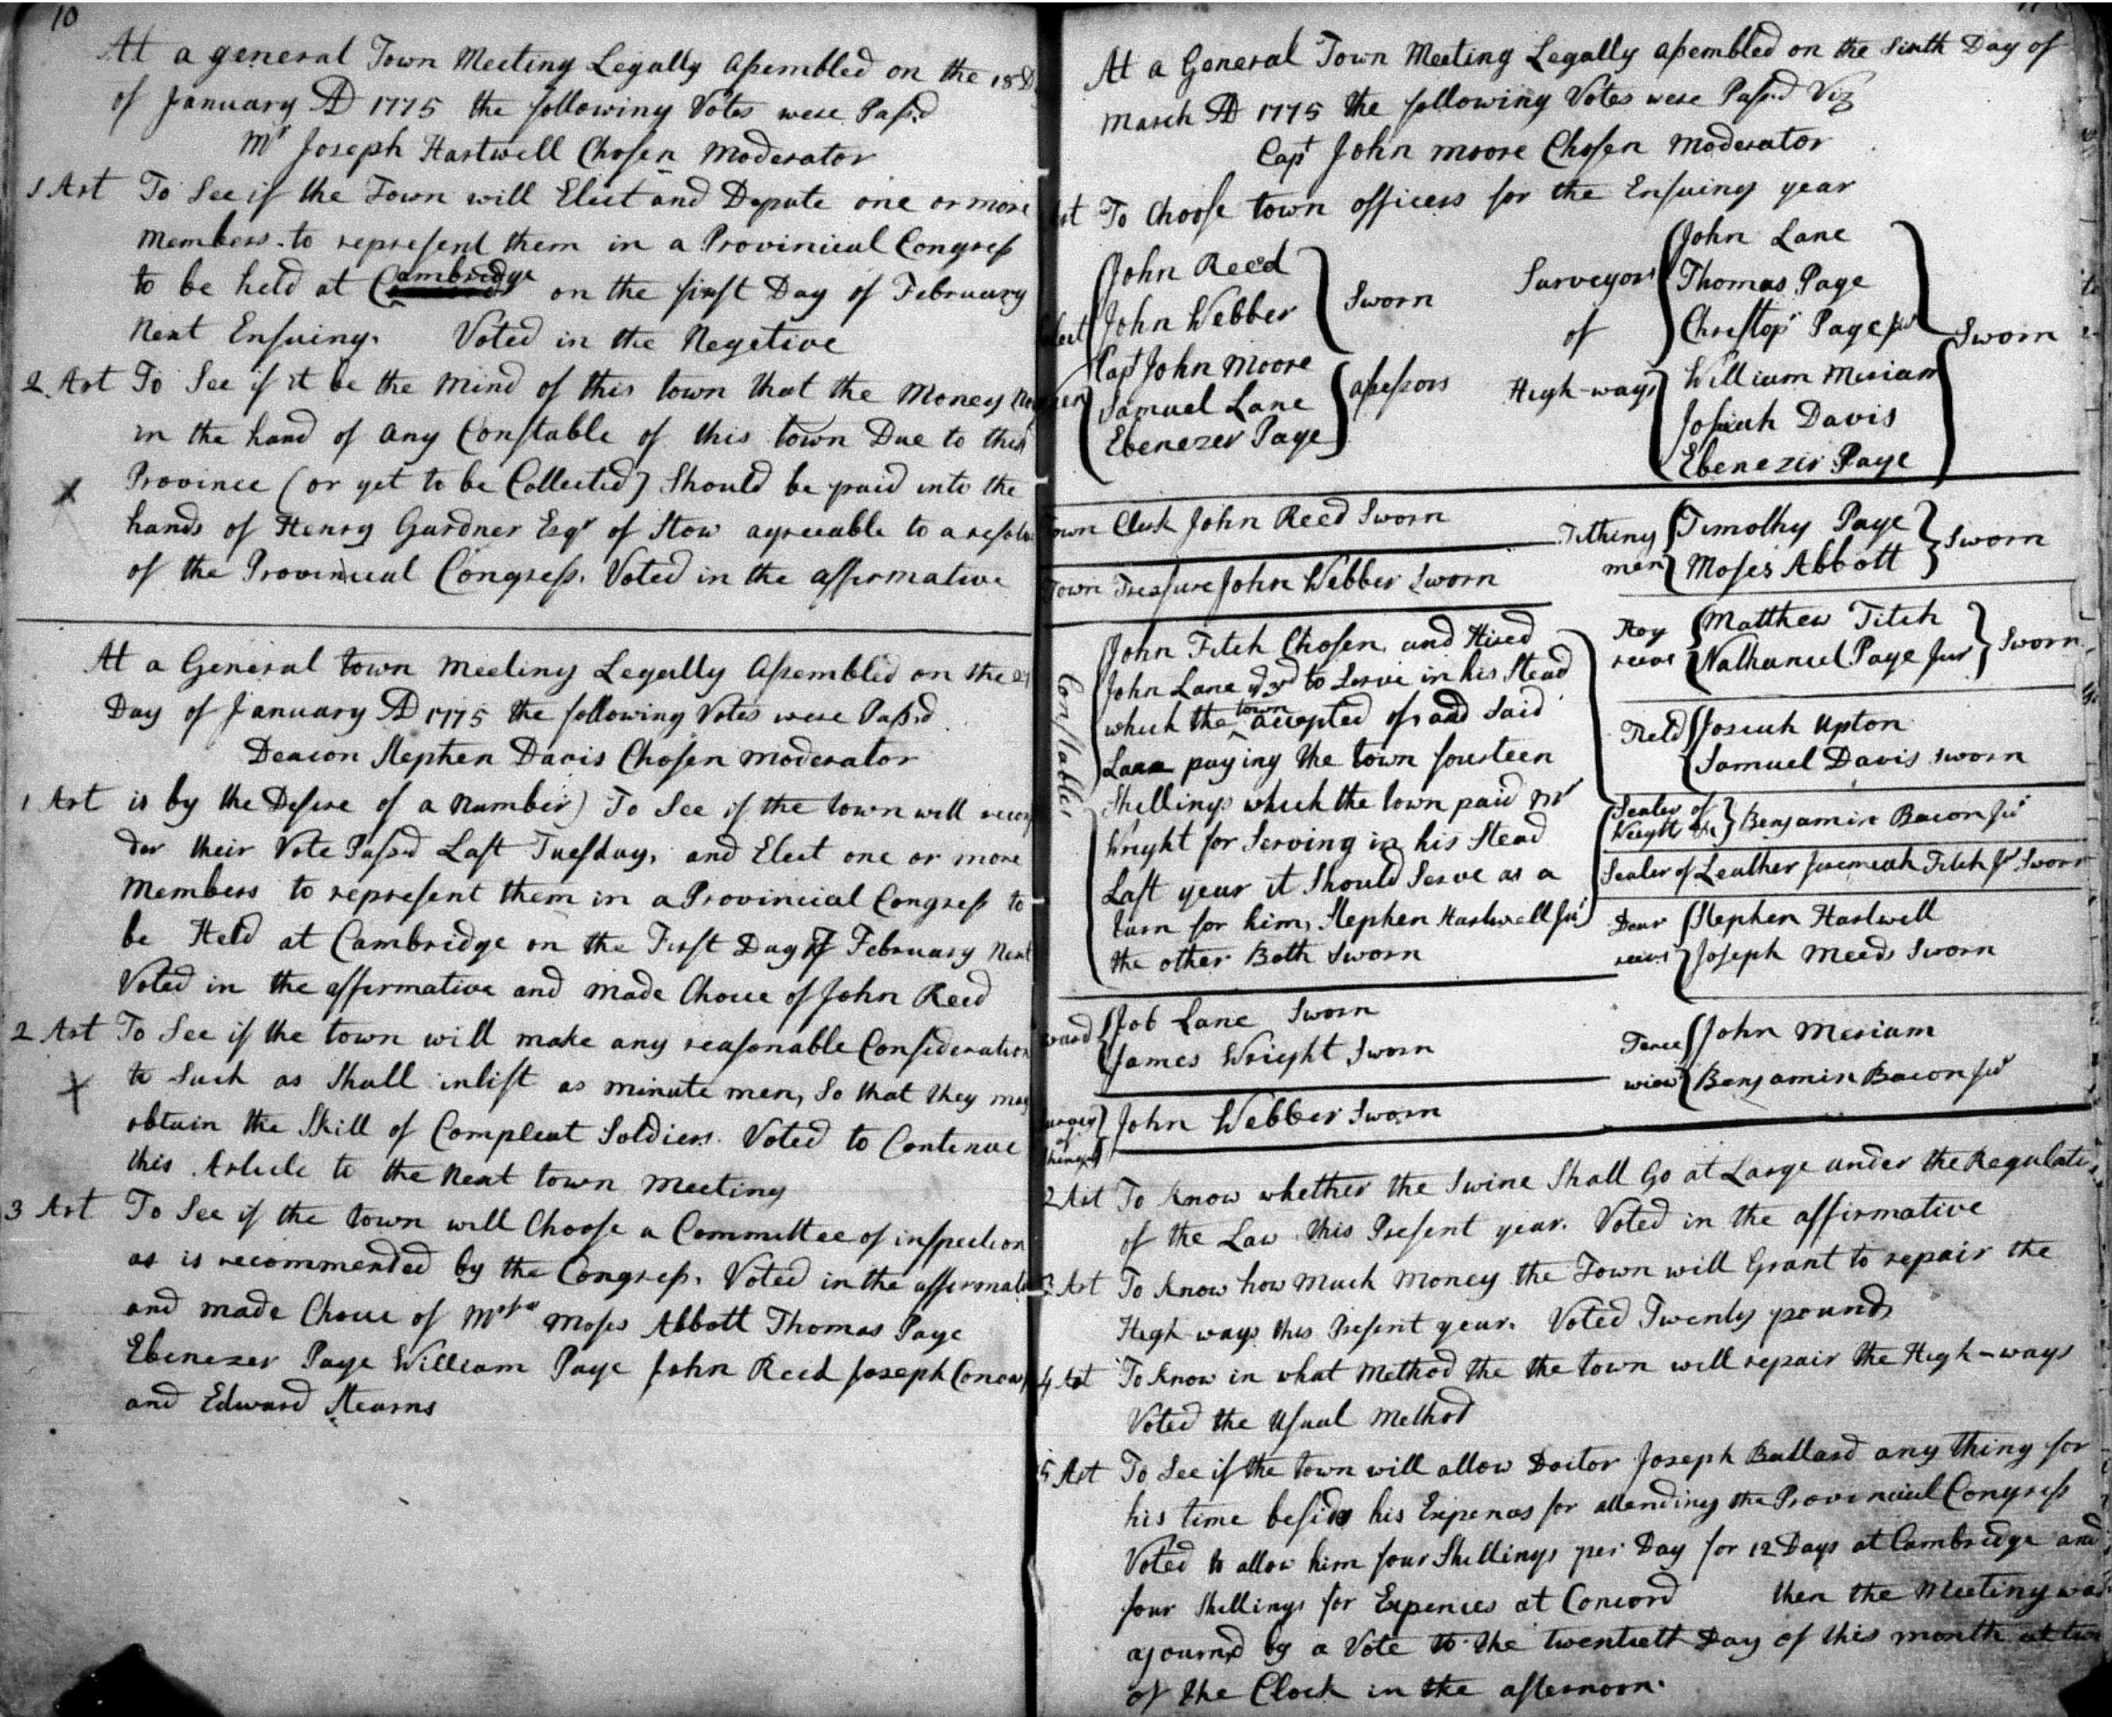 10
At a general Town Meeting Legally Assembled on the 18 D
of January AD 1775 the following Votes were Pass.d
Mr Joseph Hartwell Chosen Moderator
1 Art To See if the Town will Elect and Depute one or more
Members to represent them in a Provincial Congress
to be held at Cambridge on the first Day of February
Next Ensuing. Voted in the Negetive
2 Art To See if it be the Mind of this town that the Money
in the hand of any Constable of this town Due to this
Province (or yet to be Collected) Should be paid into the
hands of Henry Gardner Esqr of Stow agreeable to a resolve
of the Provincial Congress. Voted in the affirmative
At a General town Meeting Legally Assembled on the
Day of January AD 1775 the following Votes were Pass.d
Deacon Stephen Davis Chosen Moderator
1 Art is by the Desire of a Number) To See if the town will recon
der their Vote Pass.d Last Tuesday, and Elect one or more
Members to represent them in a Provincial Congress to
be Held at Cambridge on the First Day of February Next
Voted in the affirmative and made Choice of John Reed
2 Art To See if the town will make any reasonable Consideration
to Such as Shall inlist as minute men, So that they may
obtain the Skill of Compleat Soldiers. Voted to Contenue
this Article to the Next town Meeting
3 Art To See if the town will Choose a Committee of inspection
as is recommended by the Congress. Voted in the affirmative
and made Choice of Moses Abbott Thomas Page
Ebenezer Page William Page John Reed Joseph
and Edward Stearns
11
At a General Town Meeting Legally assembled on the Sixth Day of
March AD 1775 the following Votes were Pass.d Viz
Capt John Moore Chosen Moderator
Art To Choose town officers for the Ensuing year
John Reed
John Webber
Sworn
Capt John Moore
Samuel Lane
Ebenezer Page
assessors
Surveyors
of
High-ways
John Lane
Thomas Page
Christopr Page jur
William Meriam
Josiah Davis
Ebenezer Page
Sworn
Town Clerk John Reed Sworn
Town Tressure John Webber Sworn
Constables
John Fitch Chosen and Hired
John Lane ye 3rd to Serve in his Stead
which the town accepted of, and Said
Lane paying the town fourteen
Shillings which the town paid Mr
Wright for Serving in his Stead
Last year it Should Serve as a
turn for him, Stephen Hartwell Jur
the other Both Sworn
Job Lane Sworn
James Wright Sworn
John Webber Sworn
Tithing
men
Timothy Page
Moses Abbott
Sworn
Hog
reevs
Matthew Fitch
Nathaniel Page Jur
Sworn
Field
Josiah Upton
Samuel Davis Sworn
Sealer of
Weight &c
Benjamin Bacon Jur
Sealer of Leather Jeremiah Fitch Jr Sworn
Dear
reevs
Stephen Hartwell
Joseph Meeds Sworn
Fence
wiew
John Meriam
Benjamin Bacon Jur
2 Art To Know whether the Swine Shall Go at Large under the Regulati
of the Law this Present year. Voted in the affirmative
3 Art To Know how much money the Town will Grant to repair the
High ways this Present year. Voted Twenty pounds
4 Art To Know in what Method the the town will repair the High-ways
Voted the Usual Method
5 Art To See if the town will allow Doctor Joseph Ballard any thing for
his time beside his Expences for attending the Provincial Congress
Voted to allow him four Shillings per Day for 12 Days at Cambridge and
four Shillings for Expences at Concord then the Meeting was
ajournd by a Vote to the twentieth Day of this month at two
of the Clock in the afternoon.